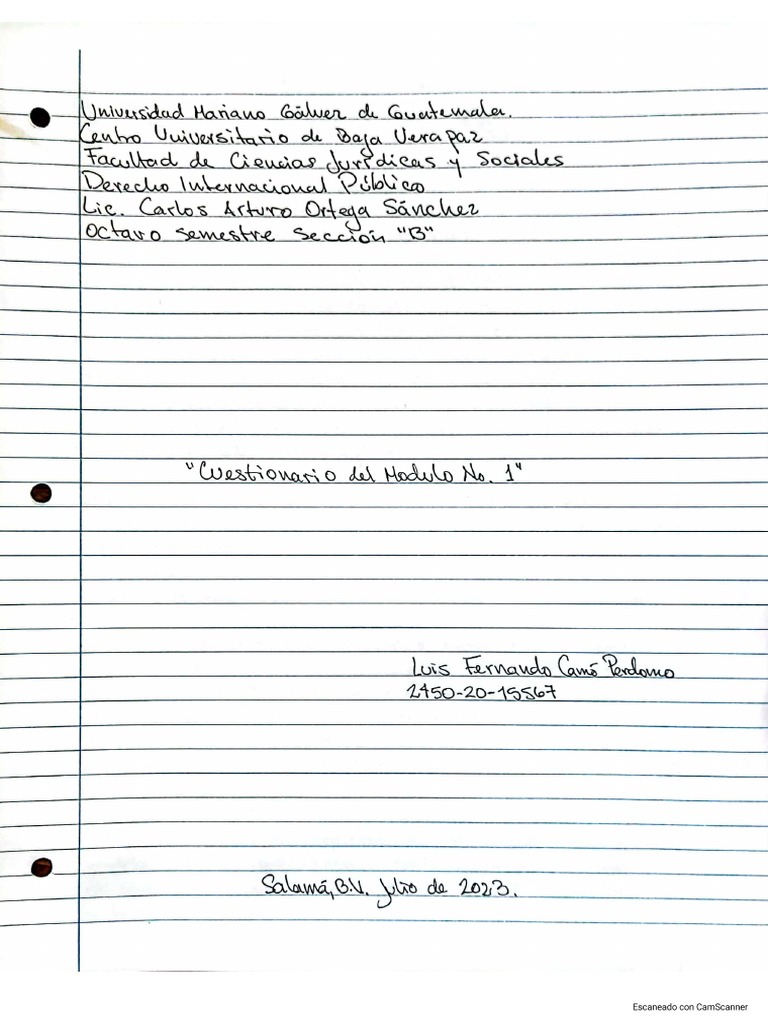 Universidad Mariano Gálvez de Guatemala.
Centro Universitario de Baja Verapaz
Facultad de Ciencias Jurídicas y Sociales
Derecho Internacional Público
Lic. Carlos Arturo Ortega Sánchez
Octavo semestre Sección "B"
"Cuestionario del Modulo No. 1"
Luis Fernando Camó Perdomo
2450-20-15567
Salamá, B.V. Julio de 2023.
Escaneado con CamScanner